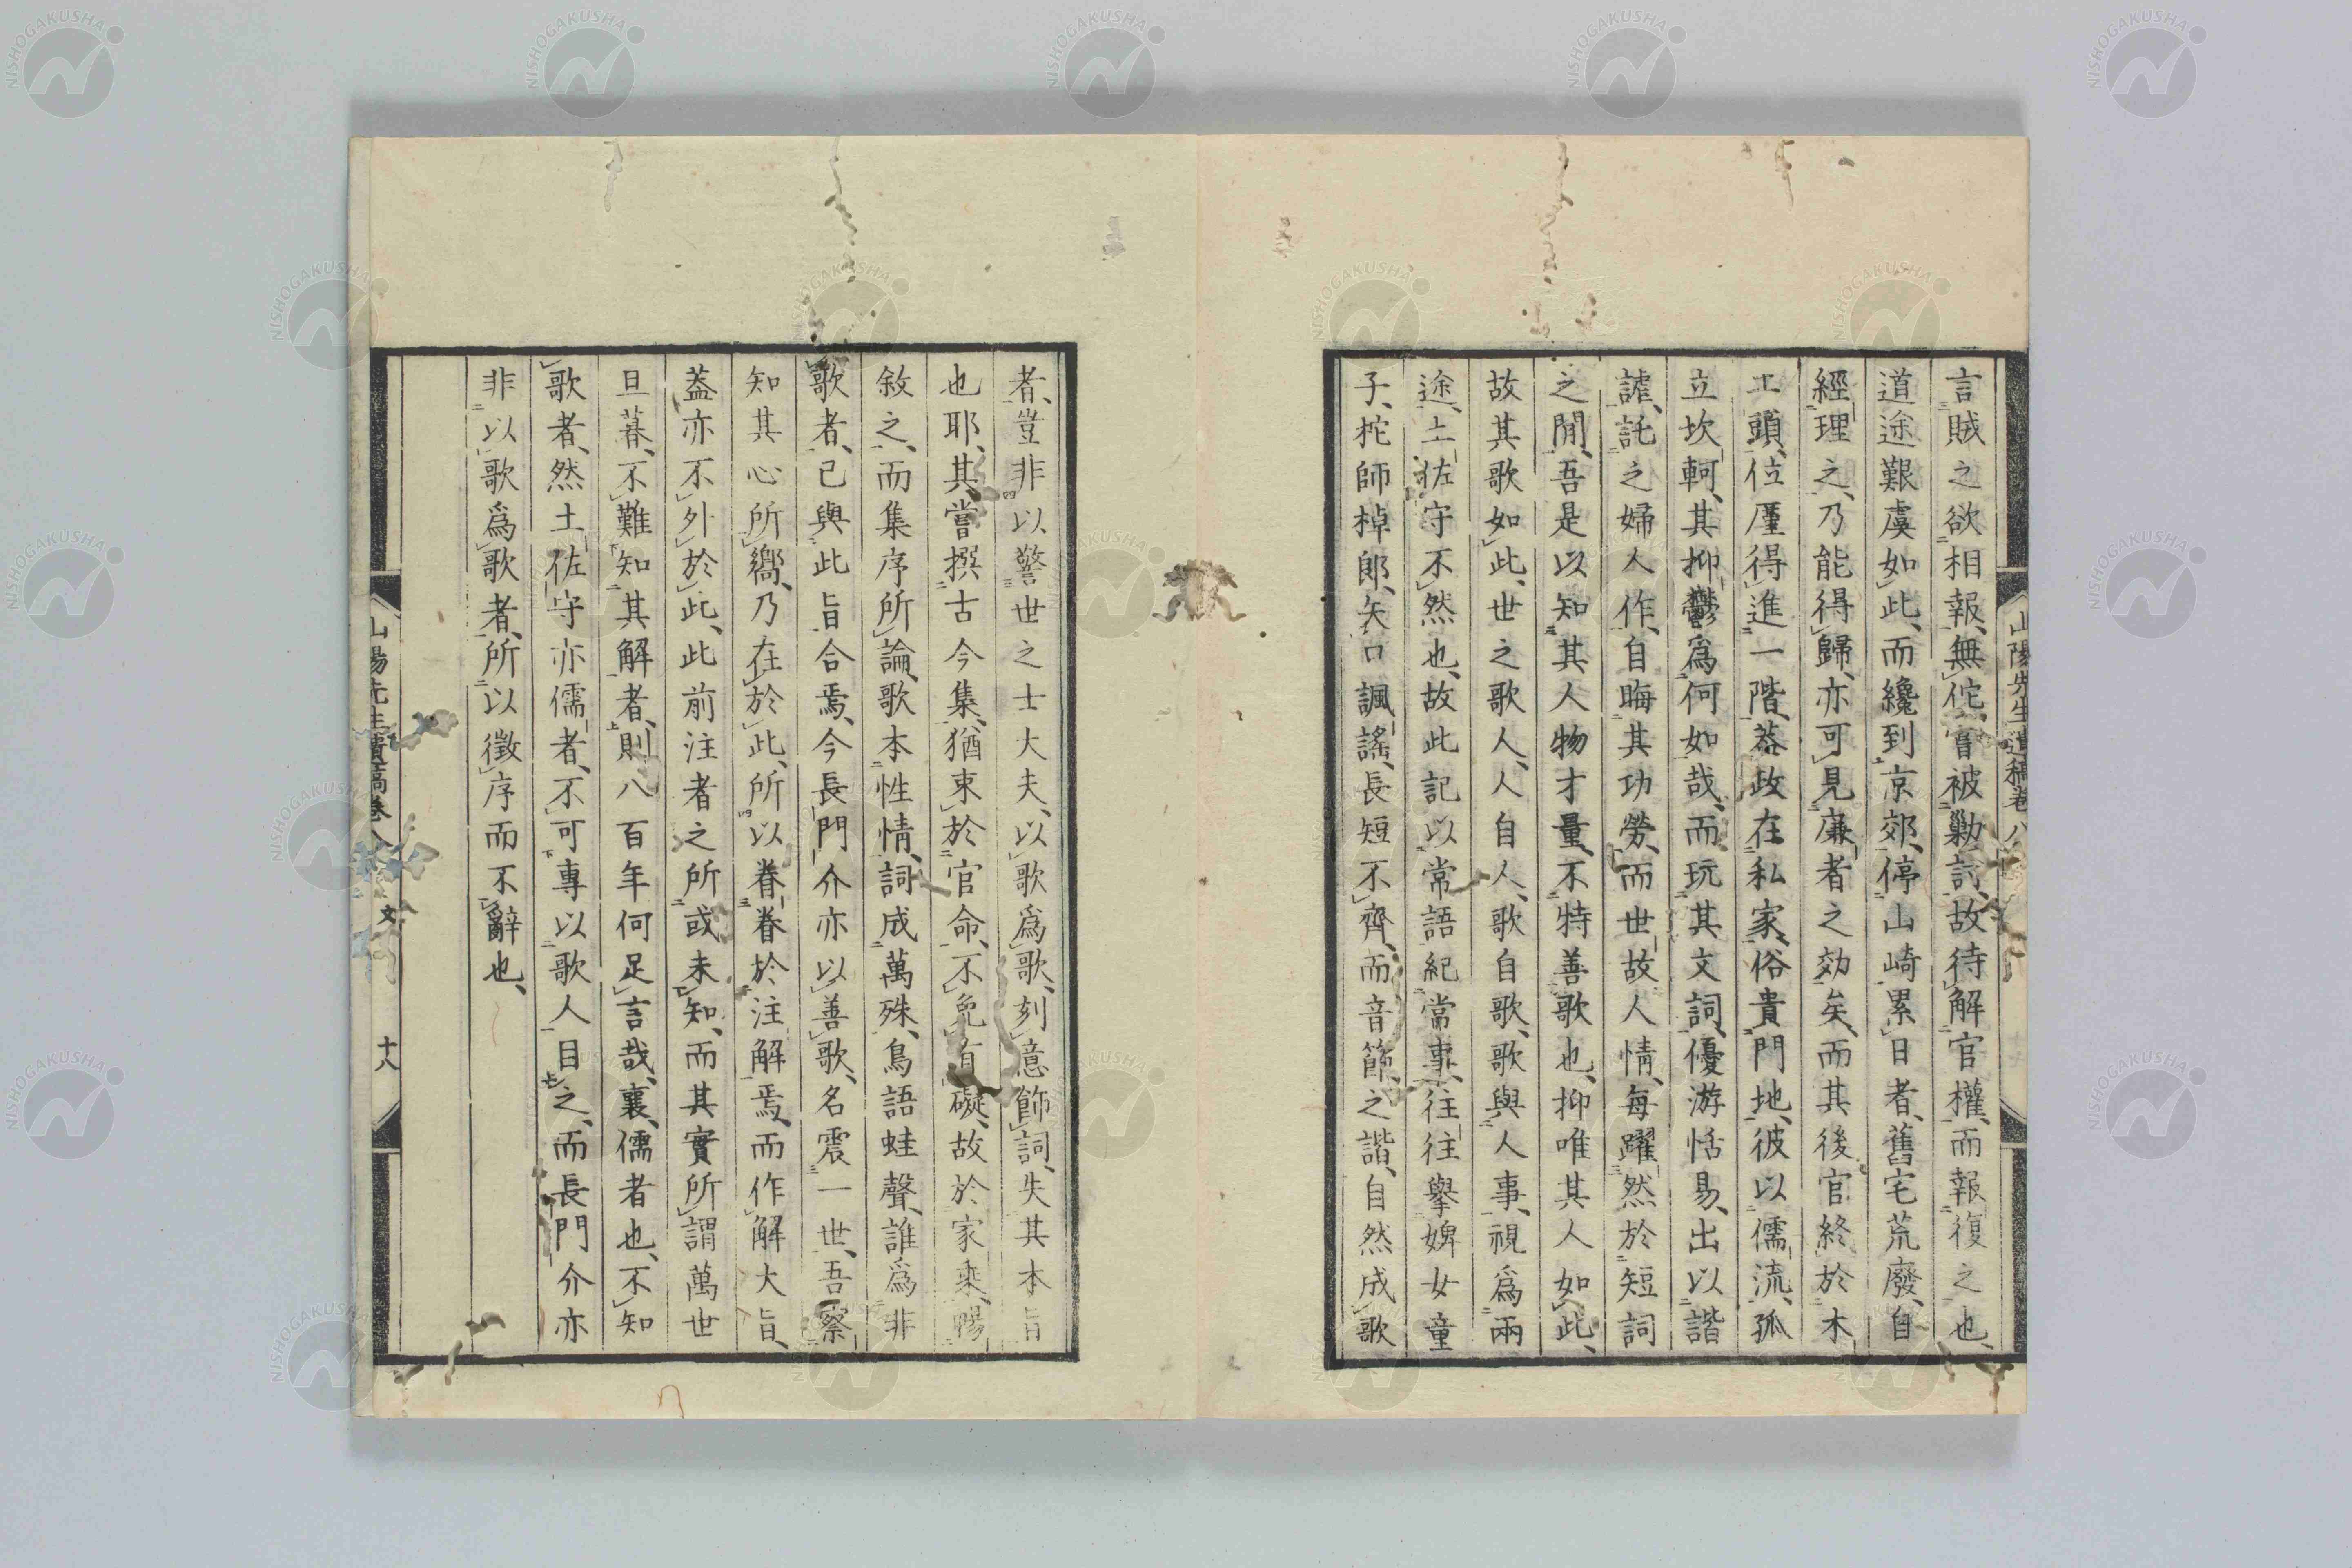 言賊之欲相報、無佗、嘗被勦討、故待解官權、而報復之也、
道途艱虞如此、而纔到京郊、停山崎累日者、舊宅荒廢、自
經理之、乃能得歸、亦可見廉者之効矣、而其後官終於木
工頭、位厪得進一階、葢政在私家、俗貴門地、彼以儒流、孤
立坎軻、其抑鬱爲何如哉、而玩其文詞、優游恬易、出以諧
謔、託之婦人作、自晦其功勞、而世故人情、每躍然於短詞
之間、吾是以知其人物才量、不特善歌也、抑唯其人如此、
故其歌如此、世之歌人、人自人、歌自歌、歌與人事、視爲兩
途、土佐守不然也、故此記以常語紀當事、往往擧婢女童
子、柁師棹郎、矢口諷謠、長短不齊、而音節之諧、自然成歌
者、豈非以警世之士大夫、以歌爲歌、刻意飾詞、失其本旨
也耶、其嘗撰古今集、猶束於官命、不免有礙、故於家乘、暢
敘之、而集序所論、歌本性情、詞成萬殊、鳥語蛙聲、誰爲非
歌者、已與此旨合焉、今長門介亦以善歌、名震一世、吾察
知其心所嚮、乃在於此、所以眷眷於注解焉、而作解大旨、
葢亦不外於此、此前注者之所或未知、而其實所謂萬世
旦暮、不難知其解者、則八百年何足言哉、襄、儒者也、不知
歌者、然土佐守亦儒者、不可專以歌人目之、而長門介亦
非以歌爲歌者、所以徵序而不辭也、
山陽先生遺稿卷八
山陽先生遺稿卷八 文 十八
NISHOGAKUSHA